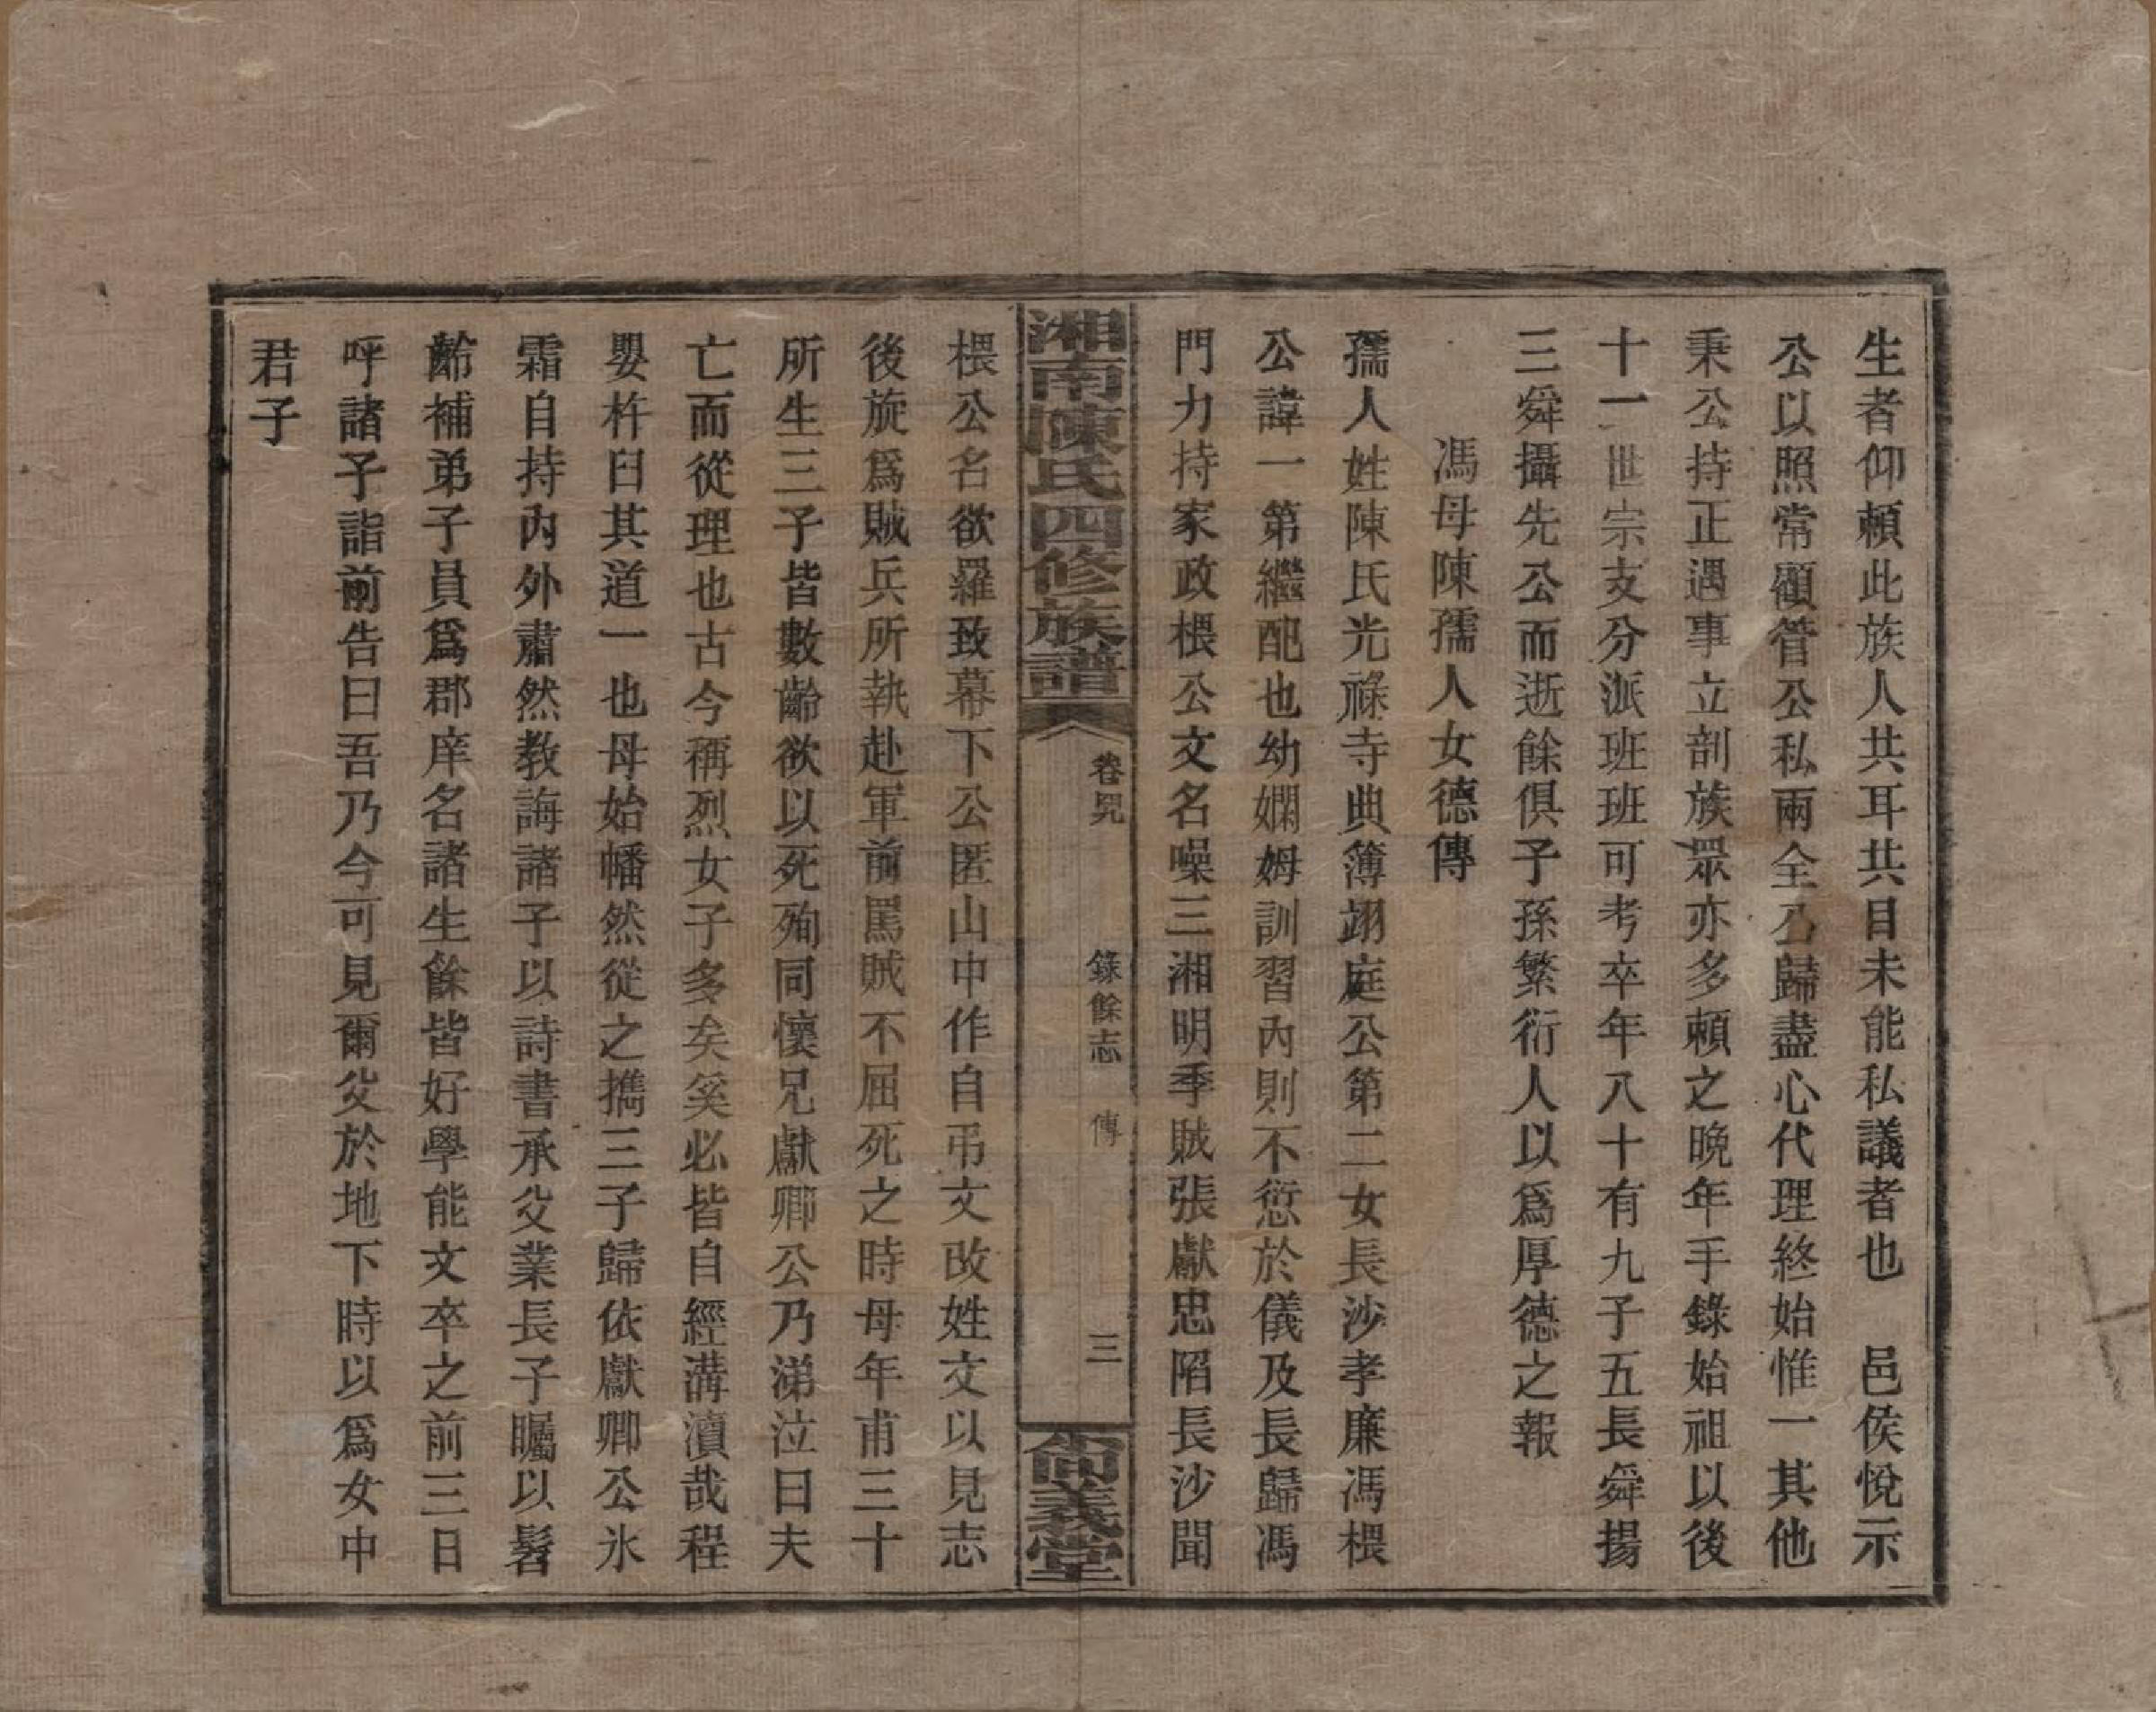 生者仰賴此族人共耳共目未能私議者也　邑侯悅示
公以照常顧管公私兩全乃歸盡心代理終始惟一其他
秉公持正遇事立剖族眾亦多賴之晚年手錄始祖以後
十一世宗支分派班班可考卒年八十有九子五長舜揚
三舜攝先公而逝餘俱子孫繁衍人以爲厚德之報
馮母陳孺人女德傳
孺人姓陳氏光祿寺典簿翊庭公第二女長沙孝廉馮椳
公諱一第繼配也幼嫻姆訓習內則不愆於儀及長歸馮
門力持家政椳公文名噪三湘明季賊張獻忠陷長沙聞
湘南陳氏四修族譜　卷　錄餘志　傳　三　尙義堂
椳公名欲羅致幕下公匿山中作自弔文改姓文以見志
後旋爲賊兵所執赴軍前罵賊不屈死之時母年甫三十
所生三子皆數齡欲以死殉同懷兄獻卿公乃涕泣曰夫
亡而從理也古今稱烈女子多矣奚必皆自經溝瀆哉程
嬰杵臼其道一也母始幡然從之攜三子歸依獻卿公氷
霜自持內外肅然教誨諸子以詩書承父業長子矚以髫
齡補弟子員爲郡庠名諸生餘皆好學能文卒之前三日
呼諸子詣前告曰吾乃今可見爾父於地下時以爲女中
君子